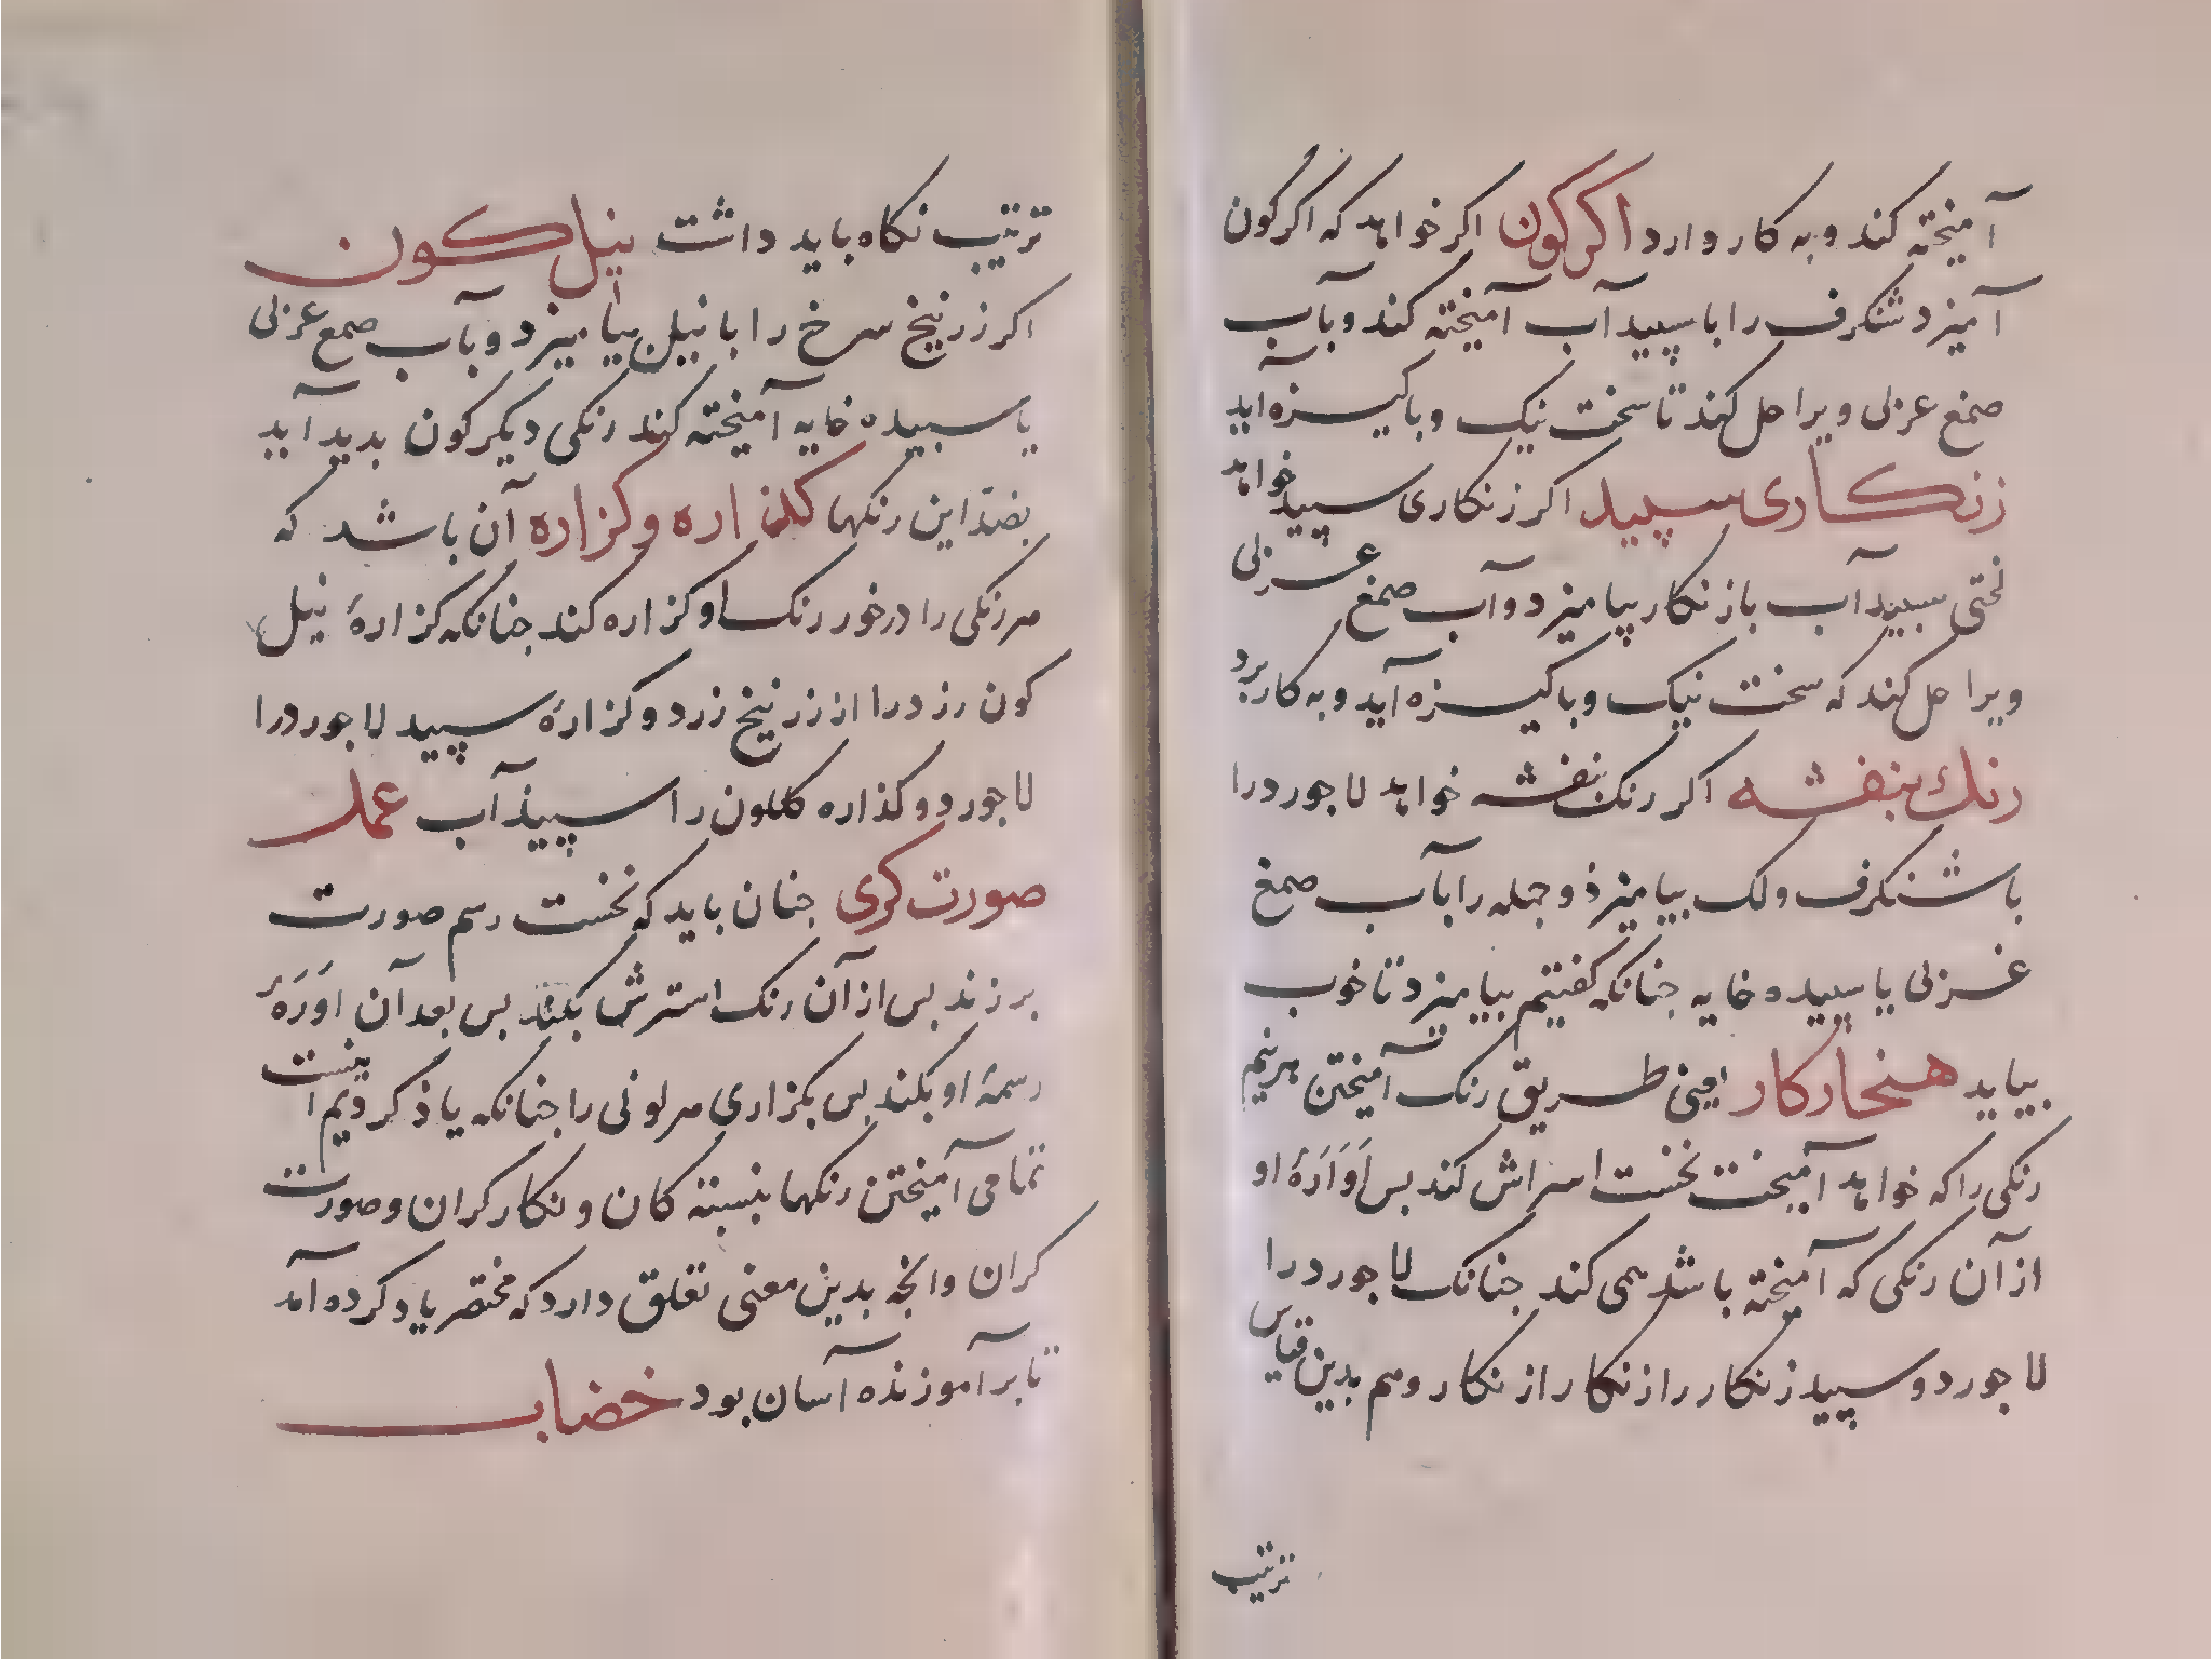 آمیخته کند و به کار دارد اکرکون اکر خواهد که اکرکون
آمیزد شنکرف را با سپیدآب آمیخته کند و بآب
صمغ عزلی ویرا حل کند تا سخت نیک و باکیزه آید
زنکاری سپید اکر زنکاری سپید خواهد
لختی سپیدآب با زنکار بیامیزد و آب صمغ عزلی
ویرا حل کند که سخت نیک و باکیزه آید و به کار برد
رنك بنفشه اکر رنک بنفشه خواهد لاجورد را
با شنکرف و لک بیامیزذ و جمله را بآب صمغ
غزلی یا سپیده خایه جنانکه کفتیم بیامیزد تا خوب
بیاید هنجار کار یعنی طریق رنک آمیختن هر نیم
رنکی را که خواهد آمیخت نخست اسراش کند بس اَوَارَهٔ او
از آن رنکی که آمیخته باشد همی کند جنانک لاجورد را
لاجورد و سپید زنکار را زنکار از نکار و هم بدین قیاس
ترتیب
ترتیب نکاه باید داشت نیل کون
اکر زرنیخ سرخ را با نیل بیامیزد و بآب صمع عزلی
یا سبیده خایه آمیخته کند رنکی دیکر کون بدید آید
بضدّ این رنکها کلذاره و کزاره آن باشد که
هر رنکی را درخور رنک او کزاره کند جنانکه کزارهٔ نیل
کون رزد را از زرنیخ زرد و کزارهٔ سپید لاجورد را
لاجورد و کذاره کلکون را سپیذآب عمل
صورت کری جنان باید که نخست رسم صورت
برزند بس از آن رنک استرش بکند بس بعد آن اوَرَهٔ
رسمهٔ او بکند بس بکزاری هر لونی را جنانکه یاذ کردیم اینست
تمامی آمیختن رنکها بنسبته کان و نکارکران و صورت
کران وانجه بدین معنی تعلق دارد که مختصر یاد کرده آمد
تا بر آموزنده آسان بود خضاب